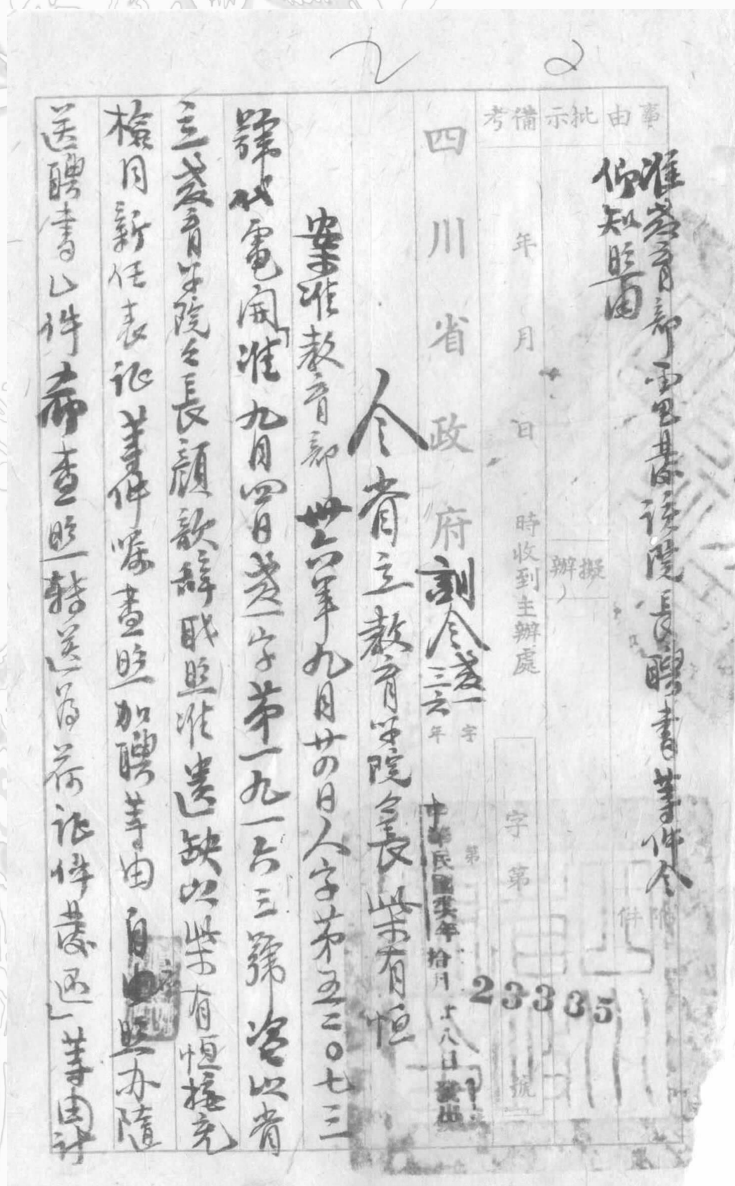 事由
批示
備考
准教育部電為發該院長聘書等件令
仰知照由
附件
擬辦
年 月 日 時收到主辦處
字第 號
四川省政府訓令
教一字第23335號
三六年
中華民國 年拾月廿八日發出
令省立教育學院院長柴有恒
案准教育部卅六年九月廿四日人字第五二〇七三
號代電開「准九月四日教一字第一九一六三號咨以省
立教育學院院長顏歆辭職照准遺缺以柴有恒接充
檢同新任表証等件囑查照加聘等由自應照办隨
送聘書乙件希查照轉送為荷証件發还」等由計